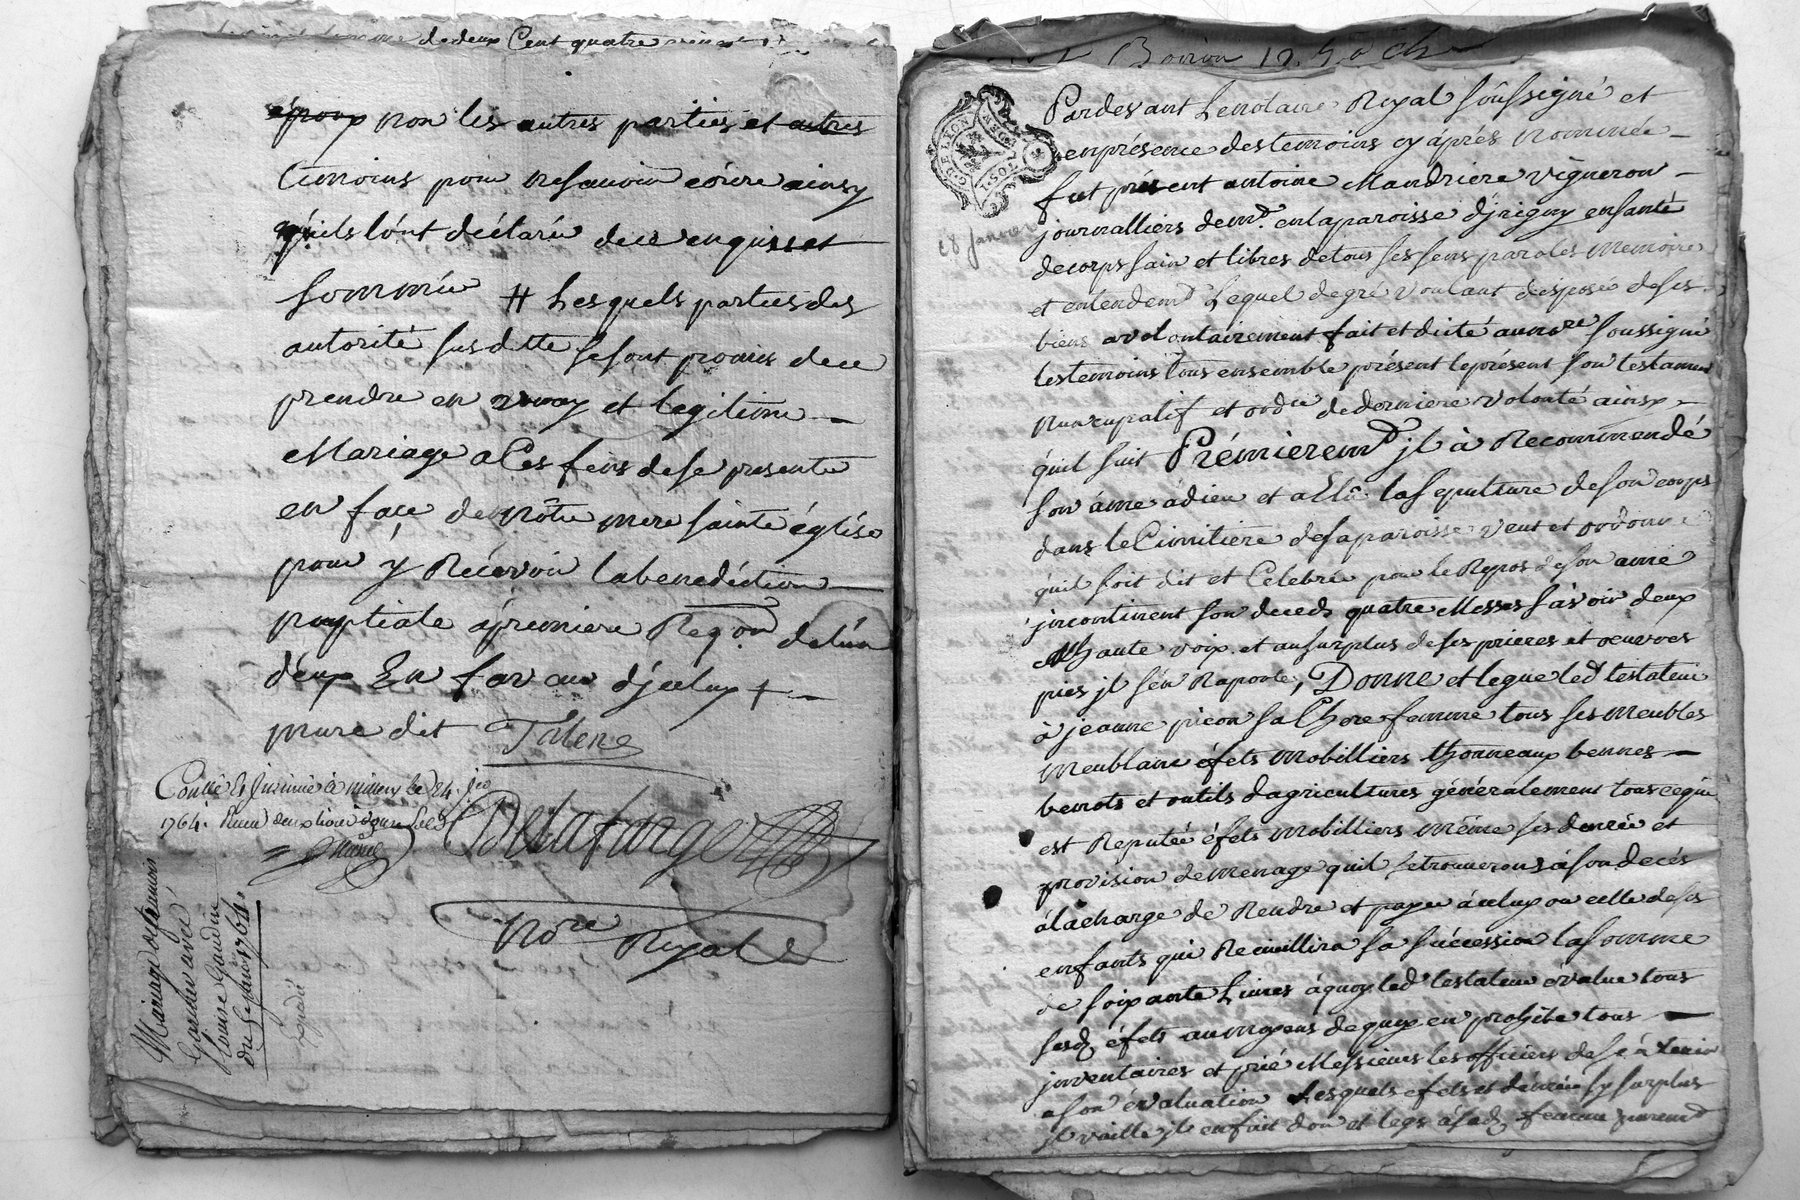 de deux Cent quatre vingt
époux non les autres parties et autres
témoins pour ne savoir écrire ainsy
quils l'ont déclaré de ce enquis et
sommés # Lesquels parties des
autorité susditte se sont promis de ce
prendre en vray et legitime
Mariage a Ces fins de se presenter
en façe de nôtre mere sainte église
pour y Recevoir la benediction
nuptiale à premiere Reqon de l'un
d'eux En faveur d'jceluy +
mure dit Talene
Controllé & Insinué à millery le 24. 
1764. Reçu
Delaforge
Nore Royal
Mariage
Gaucher avec
Louise Gaudin
du 1764.
Expedié
Boiron 12. 5. 
Pardevant Le notaire Royal soussigné et
en présence des temoins cy áprés nommée
fut présent antoine Mandriere vigneron
journalliers demt. en la paroisse d'jrigny en santé
de corps sain et libres de tous ses sens paroles Memoires
18 Janvier
et entendemt Lequel de gré voulant disposé de ses
biens a volontairement fait et dicté au nore soussigné
les temoins tous ensemble présent le présent son testament
Nuncupatif et ordre de derniere volonté ainsy
qu'il suit Prémieremt jl à Recommandé
son áme à dieu et a Elû la sepulture de son corps
dans le Cimitiere de sa paroisse veut et ordonne
qu'il soit dit et Celebré pour le Repos de son ame
jncontinent son deceds quatre Messes sávoir deux
à haute voix et au surplus de ses prieres et oeuvres
pies jl s'én Raporte, Donne et legue led testateur
à jeanne picon sa Chere femme tous ses Meubles
Meublant éfets Mobilliers thonneaux bennes
bennots et outils d'agricultures généralement tous ce qui
est Reputée éfets Mobilliers Même ses denrée et
provision de Menage qu'il se trouverons à son decés
á la charge de Rendre et payer à celuy ou celle de ses
enfants qui Recuillira sa succession la somme
de soixante Livres à quoy led testateur évalue tous
sesd éfets au moyens de quoy en prohibe tous
jnventaires et prie Messieurs les officiers de s'en tenir
a son évaluation Lesquels efets et denrée sy surplus
jl vaille jl en fait don et legs à sad femme